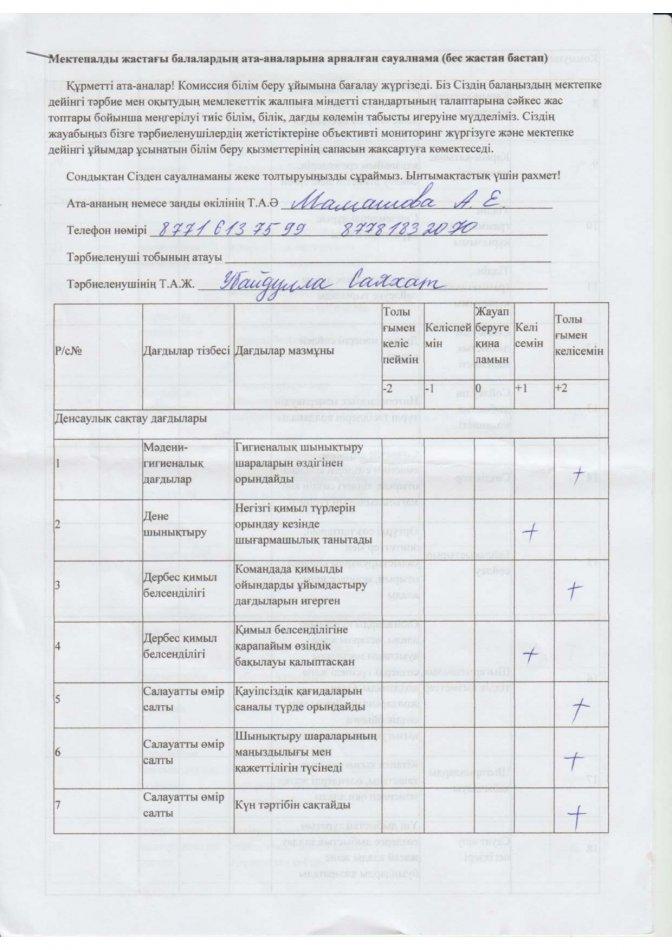 Мектепалды жастағы балалардың ата-аналарына арналған сауалнама (бес жастан бастап)
Құрметті ата-аналар! Комиссия білім беру ұйымына бағалау жүргізеді. Біз Сіздің балаңыздың мектепке
дейінгі тәрбие мен оқытудың мемлекеттік жалпыға міндетті стандартының талаптарына сәйкес жас
топтары бойынша меңгерілуі тиіс білім, білік, дағды көлемін табысты игеруіне мүдделіміз. Сіздің
жауабыңыз бізге тәрбиеленушілердің жетістіктеріне объективті мониторинг жүргізуге және мектепке
дейінгі ұйымдар ұсынатын білім беру қызметтерінің сапасын жақсартуға көмектеседі.
Сондықтан Сізден сауалнаманы жеке толтыруыңызды сұраймыз. Ынтымақтастық үшін рахмет!
Ата-ананың немесе заңды өкілінің Т.А.Ә Мамашова А Е.
Телефон нөмірі 8771 613 75 99 8778183 20 70
Тәрбиеленуші тобының атауы
Тәрбиеленушінің Т.А.Ж. Ұбайдулла Саяхат
Р/с№ Дағдылар тізбесі Дағдылар мазмұны
Толы
ғымен
келіс
пеймін
Келіспей
мін
Жауап
беруге
қина
ламын
Келі
семін
Толы
ғымен
келісемін
-2 -1 0 +1 +2
Денсаулық сақтау дағдылары
1
Мәдени-
гигиеналық
дағдылар
Гигиеналық шынықтыру
шараларын өздігінен
орындайды
+
2
Дене
шынықтыру
Негізгі қимыл түрлерін
орындау кезінде
шығармашылық танытады
+
3
Дербес қимыл
белсенділігі
Командада қимылды
ойындарды ұйымдастыру
дағдыларын игерген
+
4
Дербес қимыл
белсенділігі
Қимыл белсенділігіне
қарапайым өзіндік
бақылауы қалыптасқан
+
5
Салауатты өмір
салты
Қауіпсіздік қағидаларын
саналы түрде орындайды
+
6
Салауатты өмір
салты
Шынықтыру шараларының
маңыздылығы мен
қажеттілігін түсінеді
+
7
Салауатты өмір
салты
Күн тәртібін сақтайды
+